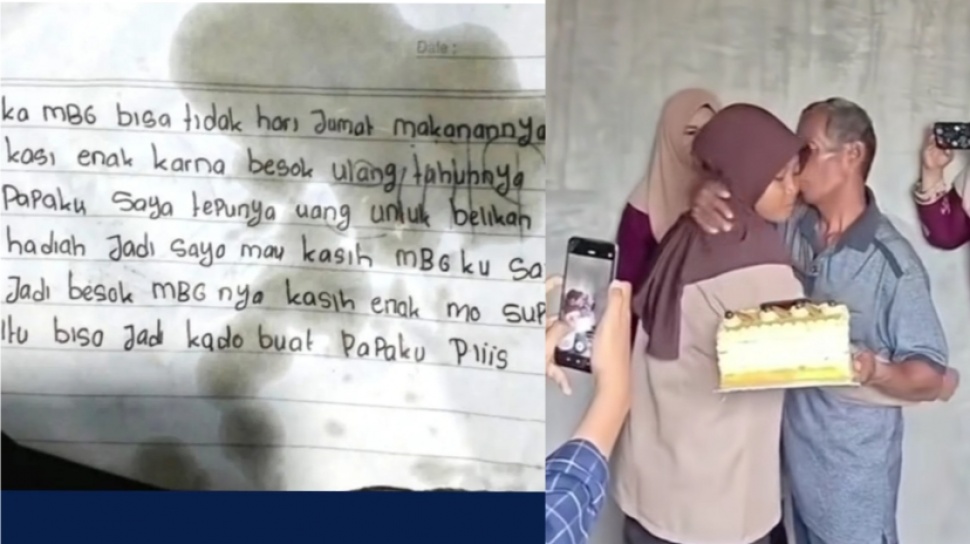 Date :
ka MBG bisa tidak hari Jumat makanannya
kasi enak karna besok ulang tahunnya
Papaku saya tepunya uang untuk belikan
hadiah Jadi saya mau kasih MBG ku sa
Jadi besok MBG nya kasih enak mo sup
itu bisa Jadi kado buat PaPaku Pliis